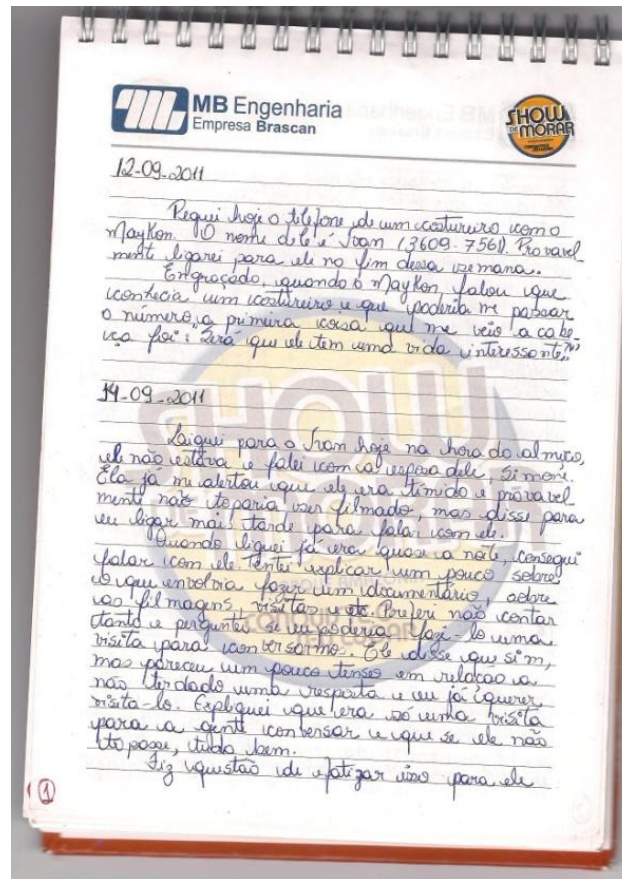 MB Engenharia
Empresa Brascan
SHOW
DE MORAR
12-09-2011
Peguei hoje o telefone de um costureiro com o
Maykon. O nome dele é Ivan (3609-7561). Provavel_
mente ligarei para ele no fim dessa semana.
Engraçado, quando o Maykon falou que
conhecia um costureiro e que poderia me passar
o número, a primeira coisa que me veio a cabe-
ça foi: "Será que ele tem uma vida interessante?"
14-09-2011
Liguei para o Ivan hoje na hora do almoço,
ele não estava e falei com a esposa dele, Simoni.
Ela já me alertou que ele era tímido e provavel
mente não toparia ser filmado, mas disse para
eu ligar mais tarde para falar com ele.
Quando liguei já era quase a noite, consegui
falar com ele. Tentei explicar um pouco sobre
o que envolvia fazer um documentário, sobre
as filmagens, visitas e etc. Preferi não contar
tanto e perguntei se eu poderia fazê-lo uma
visita para conversarmos. Ele disse que sim,
mas pareceu um pouco tenso em relação a
não ter dado uma resposta e eu já querer
visita-lo. Expliquei que era só uma visita
para a gente conversar e que se ele não
topasse, tudo bem.
Fiz questão de efatizar isso para ele
1
SHOW
DE MORAR